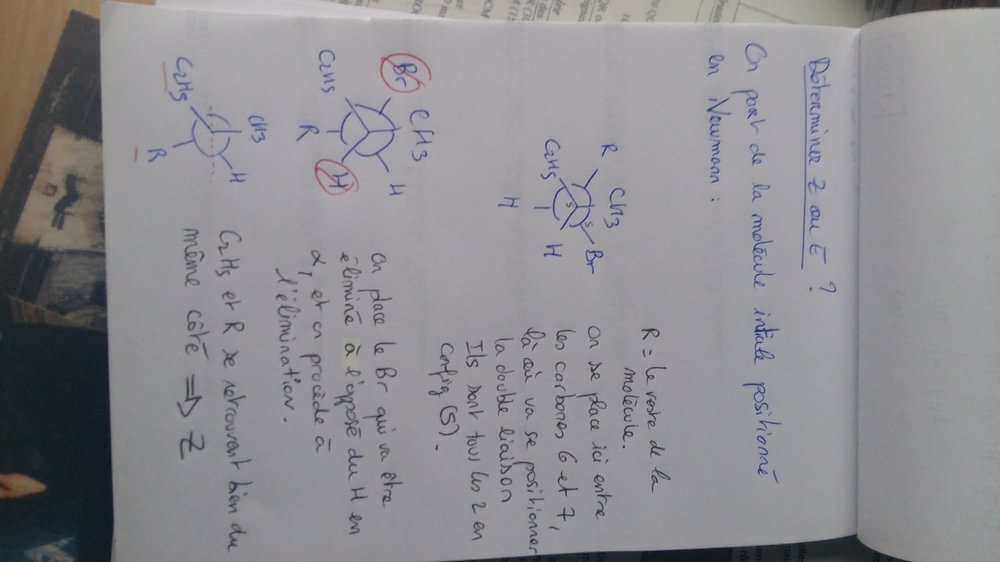 Déterminer Z ou E ?
On part de la molécule initiale positionné
en Newmann :
R
CH3
C2H5
S
S
Br
H
H
R = le reste de la
molécule.
On se place ici entre
les carbones 6 et 7,
là où va se positionner
la double liaison
Ils sont tous les 2 en
config (S).
Br
CH3
C2H5
R
H
H
On place le Br qui va être
éliminé à l'opposé du H en
α, et on procède à
l'élimination.
CH3
C2H5
R
H
C2H5 et R se retrouvent bien du
même côté ⇒ Z